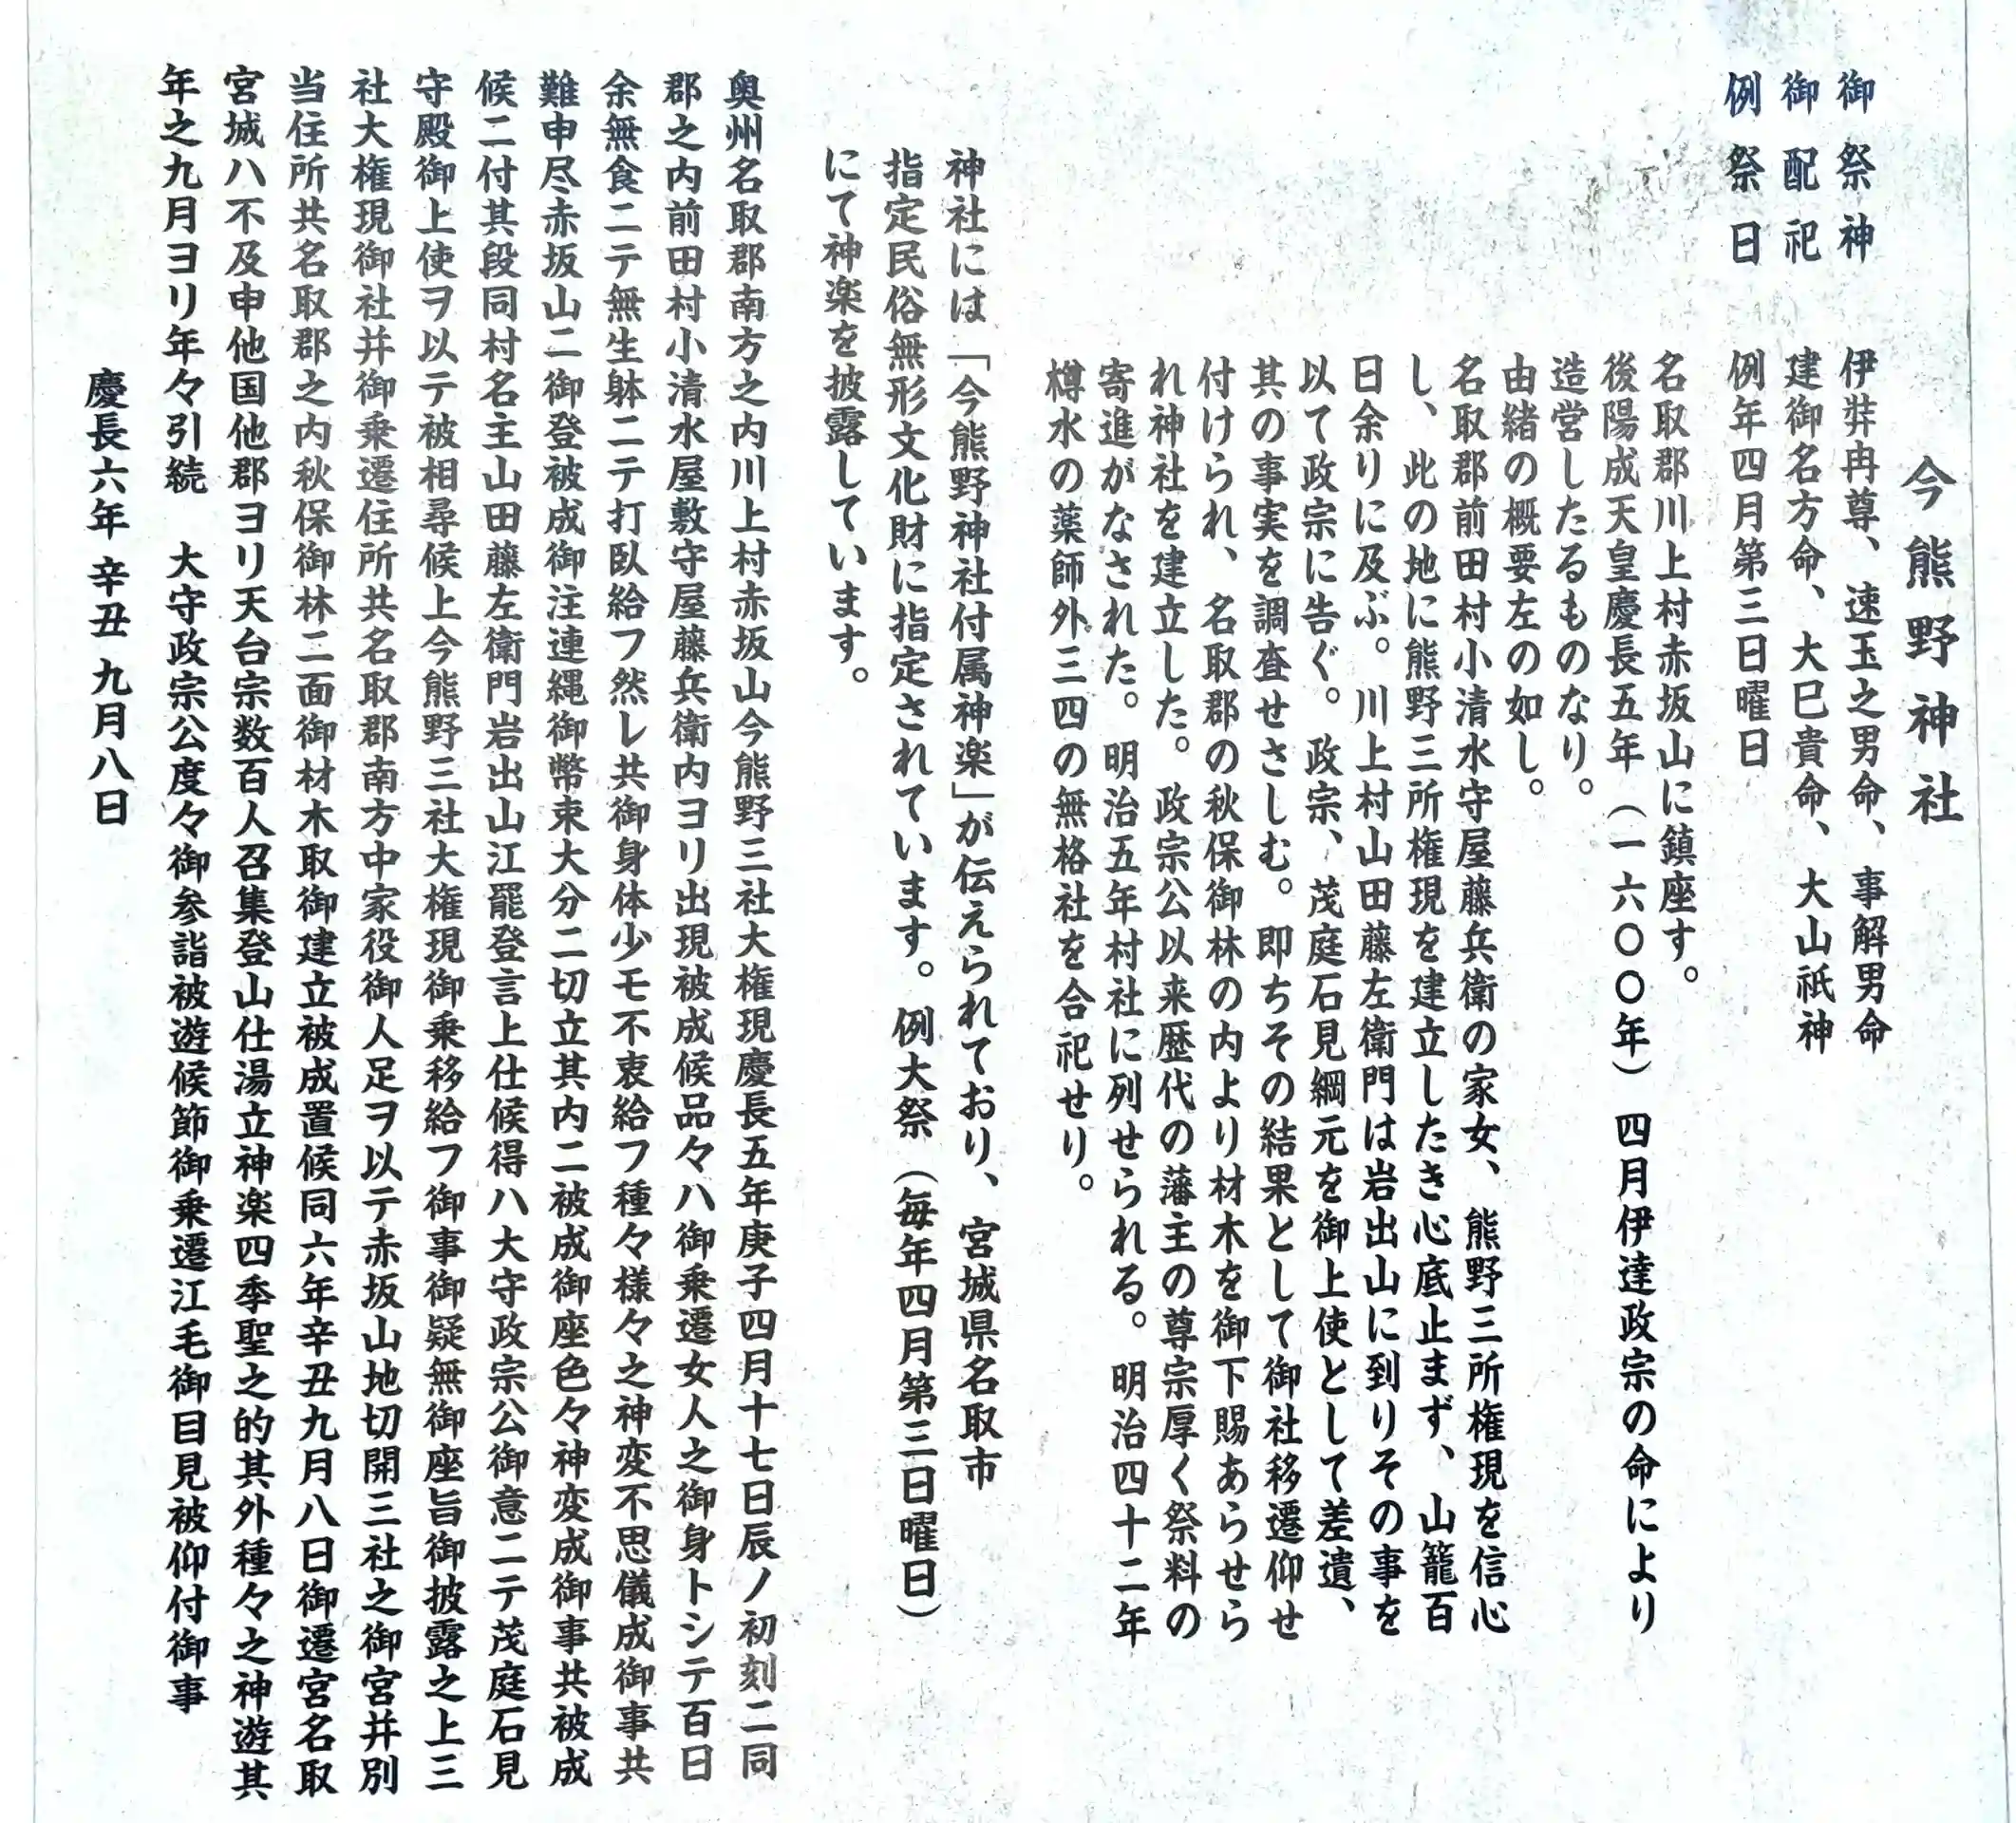 今熊野神社
御祭神 伊弉冉尊、速玉之男命、事解男命
御配祀 建御名方命、大巳貴命、大山祇神
例祭日 例年四月第三日曜日
名取郡川上村赤坂山に鎮座す。
後陽成天皇慶長五年（一六〇〇年）四月伊達政宗の命により
造営したるものなり。
由緒の概要左の如し。
名取郡前田村小清水守屋藤兵衛の家女、熊野三所権現を信心
し、此の地に熊野三所権現を建立したき心底止まず、山籠百
日余りに及ぶ。川上村山田藤左衛門は岩出山に到りその事を
以て政宗に告ぐ。政宗、茂庭石見綱元を御上使として差遣、
其の事実を調査せさしむ。即ちその結果として御社移遷仰せ
付けられ、名取郡の秋保御林の内より材木を御下賜あらせら
れ神社を建立した。政宗公以来歴代の藩主の尊宗厚く祭料の
寄進がなされた。明治五年村社に列せられる。明治四十二年
樽水の薬師外三四の無格社を合祀せり。
神社には「今熊野神社付属神楽」が伝えられており、宮城県名取市
指定民俗無形文化財に指定されています。例大祭（毎年四月第三日曜日）
にて神楽を披露しています。
奥州名取郡南方之内川上村赤坂山今熊野三社大権現慶長五年庚子四月十七日辰ノ初刻二同
郡之内前田村小清水屋敷守屋藤兵衛内ヨリ出現被成候品々ハ御乗遷女人之御身トシテ百日
余無食二テ無生躰二テ打臥給フ然レ共御身体少モ不衷給フ種々様々之神変不思儀成御事共
難申尽赤坂山二御登被成御注連縄御幣束大分二切立其内二被成御座色々神変成御事共被成
候二付其段同村名主山田藤左衛門岩出山江罷登言上仕候得ハ大守政宗公御意二テ茂庭石見
守殿御上使ヲ以テ被相尋候上今熊野三社大権現御乗移給フ御事御疑無御座旨御披露之上三
社大権現御社并御乗遷住所共名取郡南方中家役御人足ヲ以テ赤坂山地切開三社之御宮并別
当住所共名取郡之内秋保御林二面御材木取御建立被成置候同六年辛丑九月八日御遷宮名取
宮城ハ不及申他国他郡ヨリ天台宗数百人召集登山仕湯立神楽四季聖之的其外種々之神遊其
年之九月ヨリ年々引続 大守政宗公度々御参詣被遊候節御乗遷江毛御目見被仰付御事
慶長六年 辛丑 九月八日